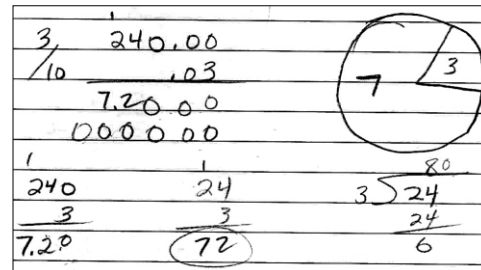 3/10 240.00
.03
7.2000
000000
7 3
240
3
7.20
24
3
72
80
3 24
24